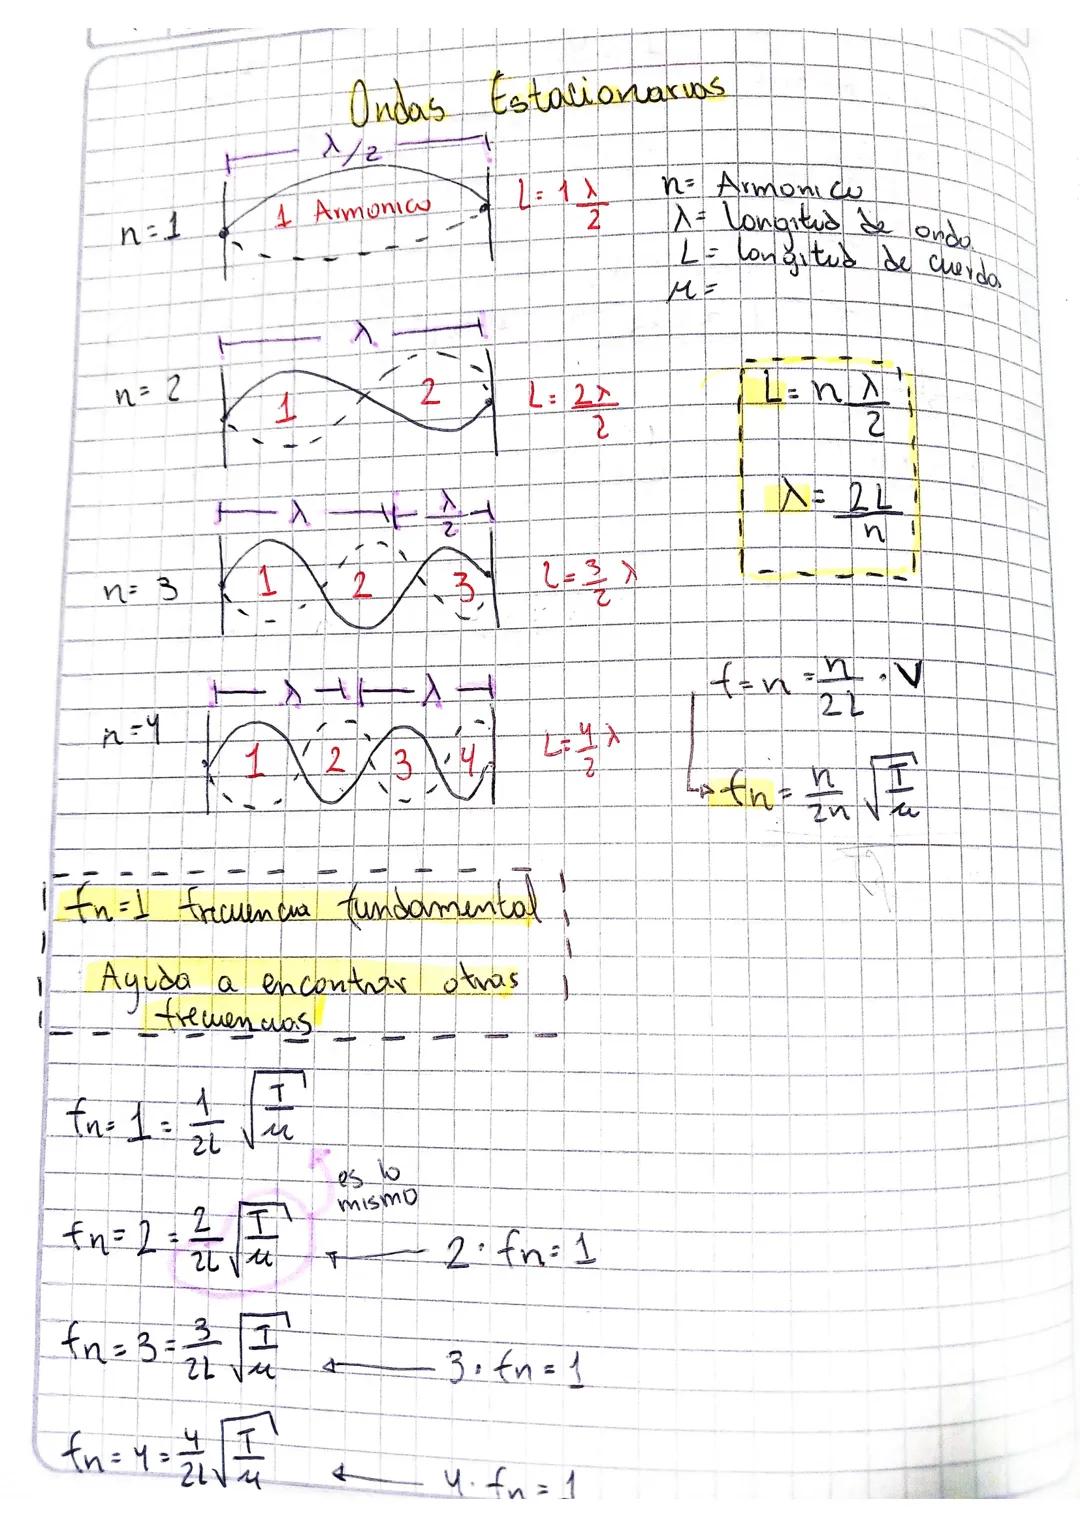 Ondas Estacionarias
λ/2
n=1
1 Armonico
L= 1 λ/2
n= Armonico
λ= longitud de onda
L= longitud de cuerda
μ=
λ
n= 2
1 2
L= 2λ/2
L= n λ/2
λ= 2L/n
λ λ/2
n= 3
1 2 3
L= 3/2 λ
λ λ
n=4
1 2 3 4
L= 4/2 λ
f=n = n/2L · V
fn= n/2n √T/μ
fn=1 frecuencia fundamental
Ayuda a encontrar otras
frecuencias
fn= 1 = 1/2L √T/μ
es lo
mismo
fn= 2 = 2/2L √T/μ
2· fn= 1
fn= 3 = 3/2L √T/μ
3· fn= 1
fn= 4 = 4/2L √T/μ
4· fn= 1